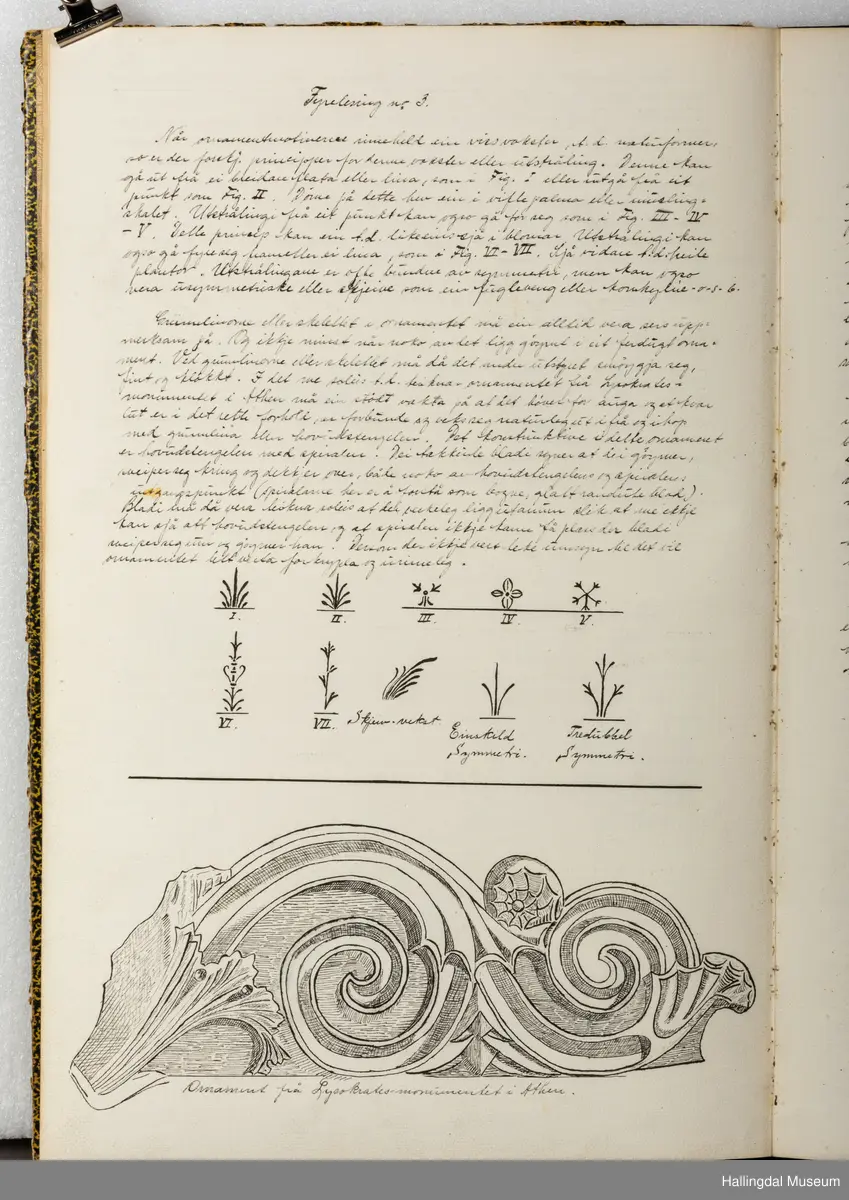 Fyrelesing no 3.
Når ornamentmotivene inneheld ein viss vokster, t.d. naturformer,
so er der forskj. principper for denne vokster eller utstråling. Denne kan
gå ut frå ei heidan flata eller lina, som i Fig. I eller utgå frå eit
punkt som Fig. II. Døme på dette hev ein i viftepalma eller musling-
skalet. Utstrålingi frå eit punkt kan ogso gå for seg som i Fig. III - IV
- V. Dette princip kan ein t.d. likesins sjå i blomar. Utstrålingi kan
ogso gå fyre seg frameller ei lina, som i Fig. VI - VII. Sjå vidare t.d. heile
plantor. Utstrålingane er ofte bundne av symmetri, men kan ogso
vera usymmetriske eller skjeive som ein fugleveng eller kornheline o. s. b.
Grunnlinorne eller skelettet i ornamentet må ein alltid vera sers upp-
merksam på. Og ikkje minst når noko av det ligg gøymt i eit ferdugt orna-
ment. Ved grunnlinorne eller skelettet må då det andre utstyret smøygja seg,
fint og mjukt. I det me soleis t.d. teknar ornamentet frå Lysokrates-
monumentet i Athen må ein støtt vakta på at det høvet for auga og at kvar
lut er i det rette forhold, er forbunde og veks seg naturleg ut i frå og ihop
med grunnlina eller hovudstengelen. Det konstruktive i dette ornament
er hovudstengelen med spiralen. Dei takkute blade syner at dei gøymer,
sveiper seg kring og dekkjer over, både noko av hovudstengelens og spiralens
utgangspunkt (spiralane her er å forstå som bogne, glatt randute blad).
Bladi må då vera teikna soleis at dei verkeleg ligg utanum slik at me ikkje
kan sjå att hovudstengelen, og at spiralen ikkje kann få plass der blade
sveiper seg um og gøymer han. Dersom der ikkje vert teke umsyn til det vil
ornamentet lett verta forkrypla og urimeleg.
I. II. III IV V.
VI. VII. Skjeiv-vekst
Einskeld Tredubbel
Symmetri. Symmetri.
Ornament frå Lysokrates-monumentet i Athen.
Hallingdal Museum